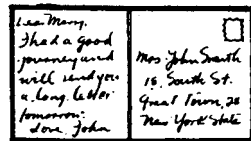 Dear Mary,
I had a good
journey and
will send you
a long letter
tomorrow.
Love John
Mrs. John Smith
15 South St.
Great Town, 28
New York State